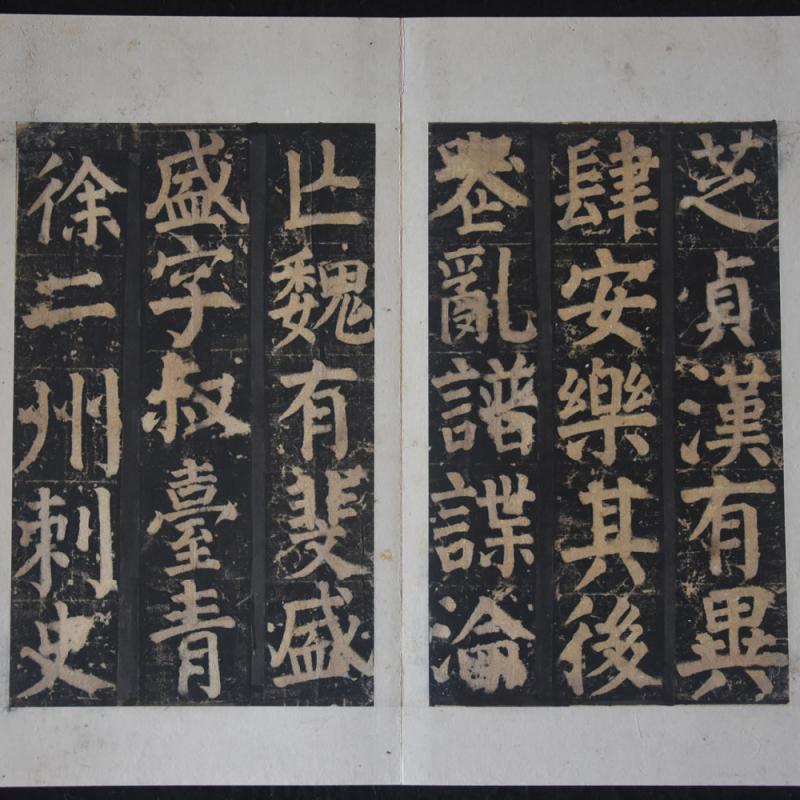 芝貞漢有異
肆安樂其後
喪亂譜諜淪
亡魏有斐盛
盛字叔臺青
徐二州刺史